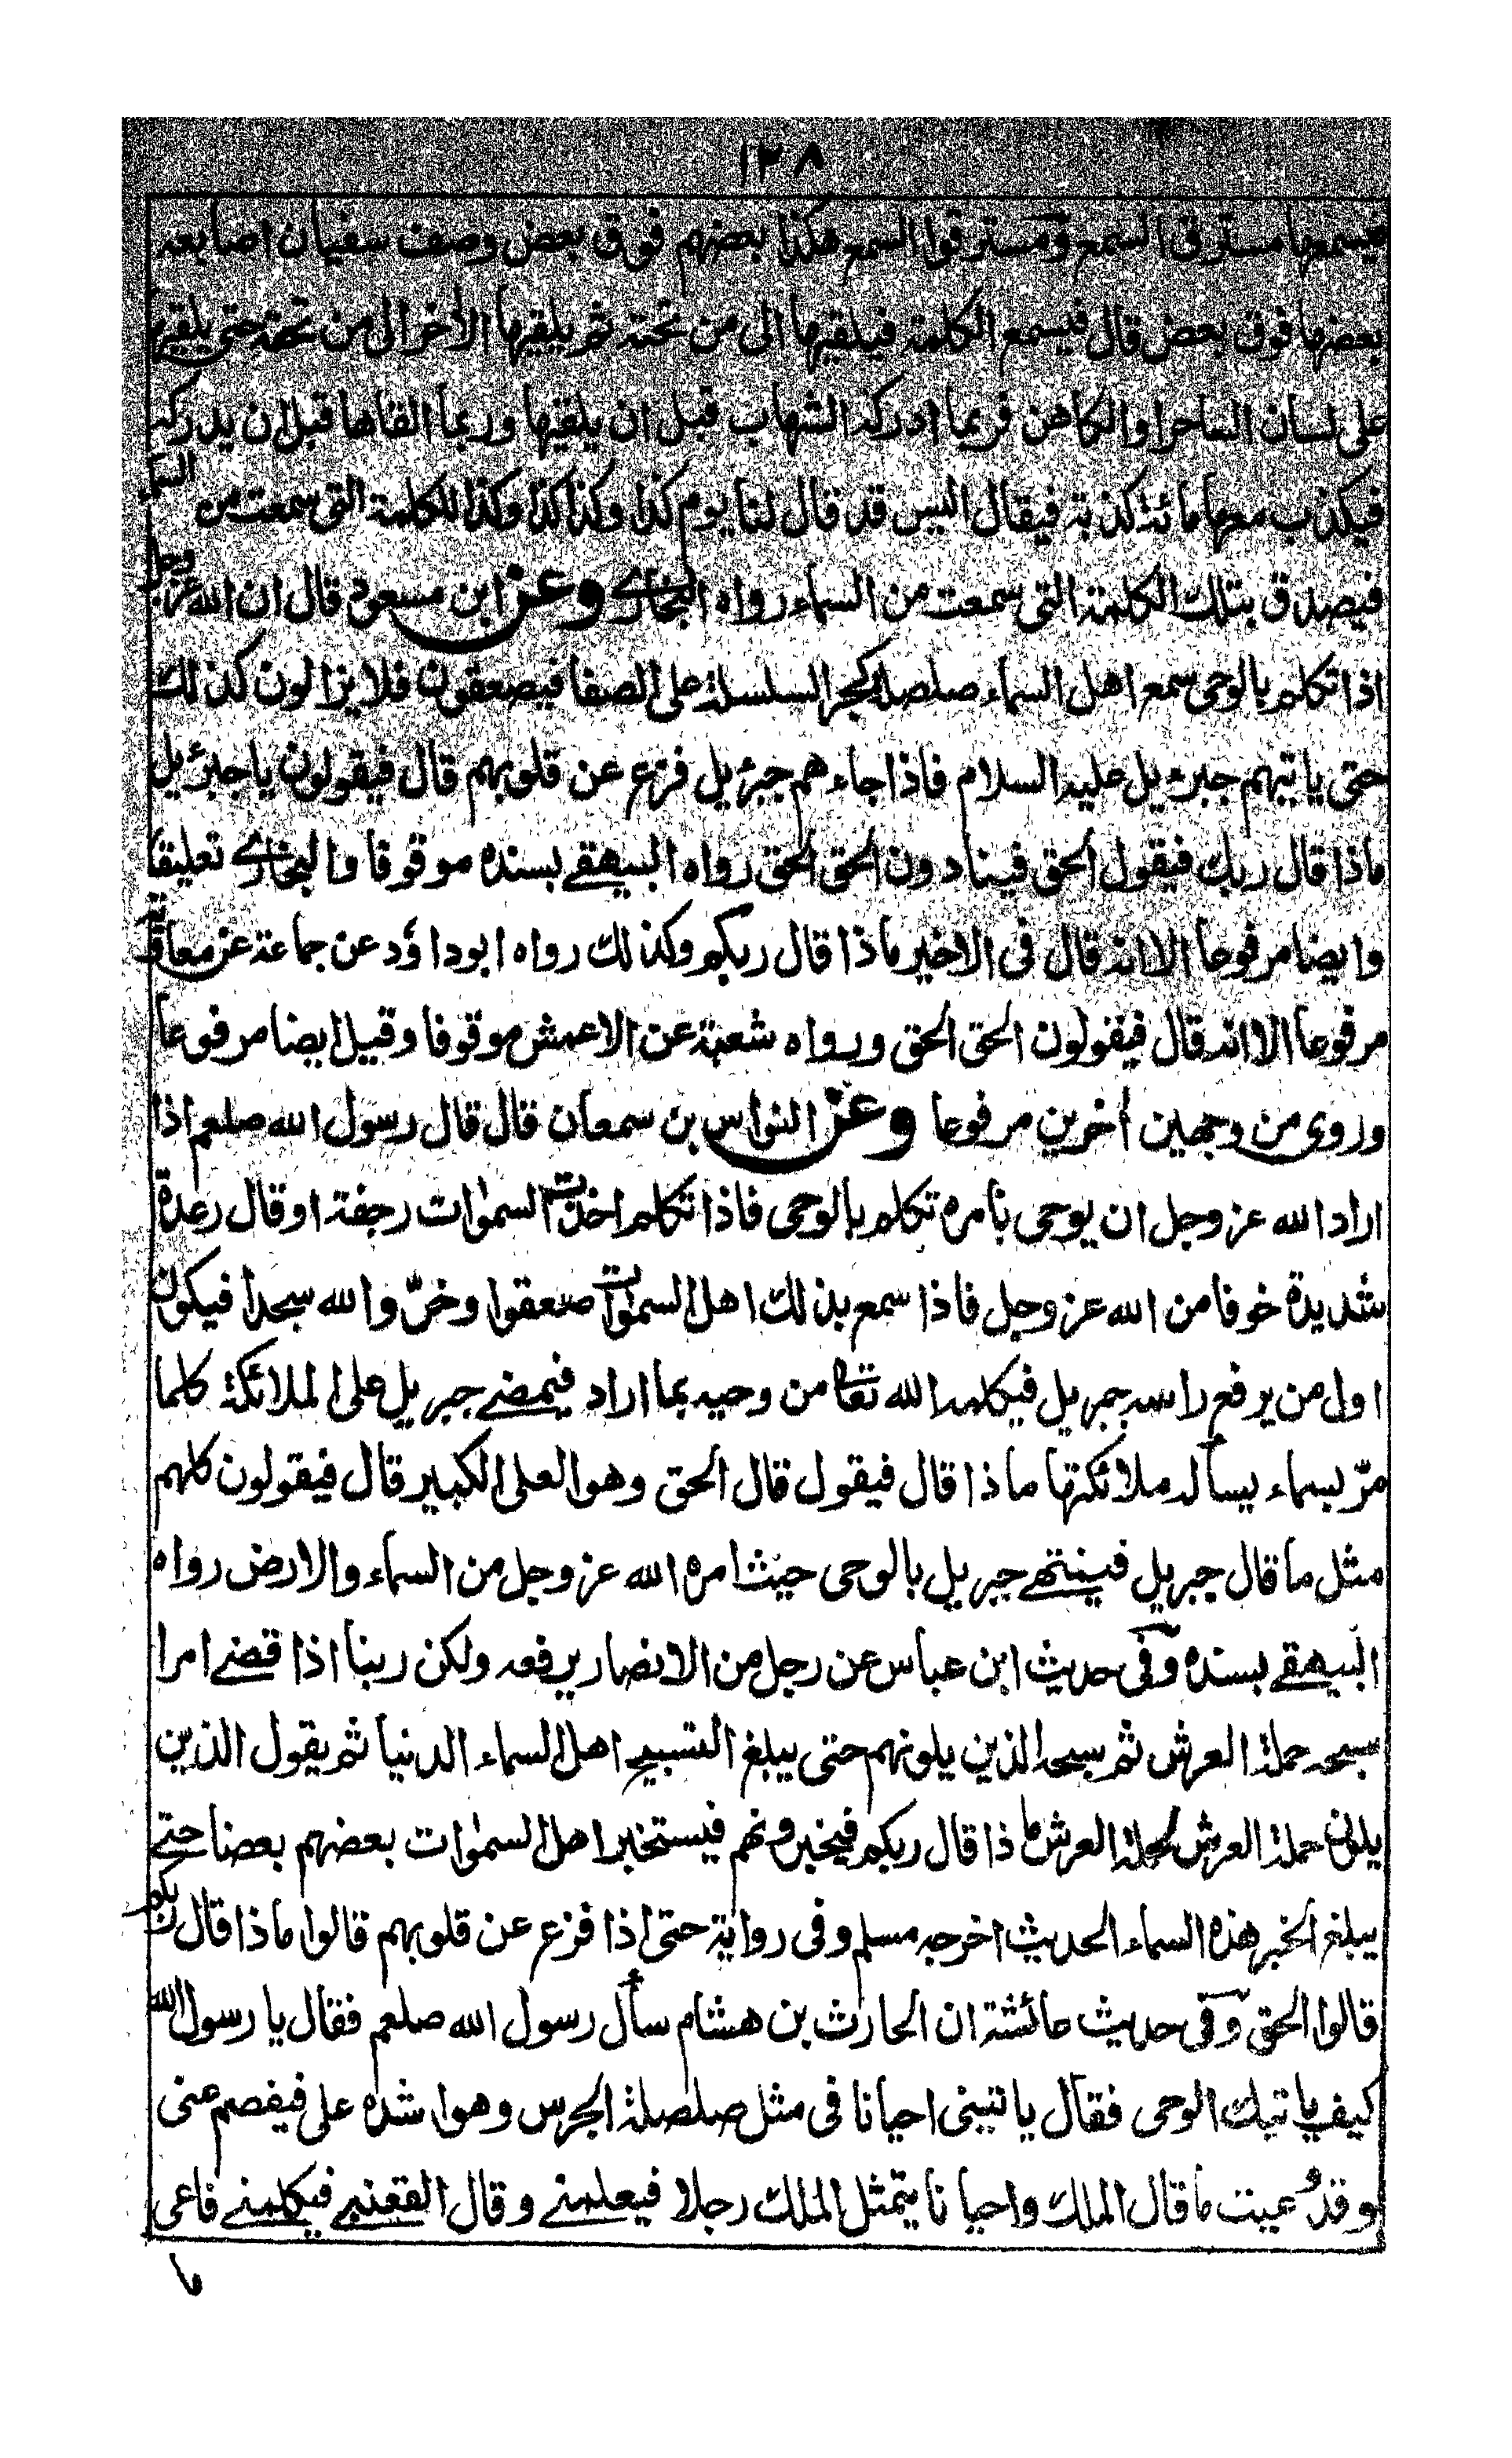 ١٢٨
فيسمعها مسترق السمع ومسترقوا السمع هكذا بعضهم فوق بعض وصف سفيان اصابعه
بعضها فوق بعض قال فيسمع الكلمة فيلقيها الى من تحته ثم يلقيها الأخر الى من تحته حتى يلقيها
على لسان الساحر او الكاهن فربما ادركه الشهاب قبل ان يلقيها وربما القاها قبل ان يدركه
فيكذب معها مائة كذبة فيقال اليس قد قال لنا يوم كذا وكذا كذا وكذا للكلمة التى سمعت من السماء
فيصدق بتلك الكلمة التى سمعت من السماء رواه البخارى وعن ابن مسعود قال ان الله عز وجل
اذا تكلم بالوحى سمع اهل السماء صلصلة كجر السلسلة على الصفا فيصعقون فلا يزالون كذلك
حتى ياتيهم جبرءيل عليه السلام فاذا جاءهم جبرئيل فزع عن قلوبهم قال فيقولون يا جبرئيل
ماذا قال ربك فيقول الحق فينادون الحق الحق رواه البيهقے بسنده موقوفا والبخارى تعليقا
وايضا مرفوعا الا انه قال فى الاخير ماذا قال ربكم وكذلك رواه ابوداؤد عن جماعة عن معاوية
مرفوعا الا انه قال فيقولون الحق الحق ورواه شعبة عن الاعمش موقوفا وقيل ايضا مرفوعا
وروى من وجهين أخرين مرفوعا وعن النواس بن سمعان قال قال رسول الله صلعم اذا
اراد الله عز وجل ان يوحى بامره تكلم بالوحى فاذا تكلم اخذت السموات رجفة او قال رعدة
شديدة خوفا من الله عز وجل فاذا سمع بذلك اهل السموات صعقوا وخرّوا لله سجدا فيكون
اول من يرفع راسه جبريل فيكلمه الله تعالى من وحيه بما اراد فيمضے جبريل على الملائكة كلما
مرّ بسماء يسأله ملائكتها ماذا قال فيقول قال الحق وهو العلى الكبير قال فيقولون كلهم
مثل ما قال جبريل فينتهے جبريل بالوحى حيث امره الله عز وجل من السماء والارض رواه
البيهقے بسنده وفى حديث ابن عباس عن رجل من الانصار يرفعه ولكن ربنا اذا قضے امرا
سبحه حملة العرش ثم يسبحه الذين يلونهم حتى يبلغ التسبيح اهل السماء الدنيا ثم يقول الذين
يلون حملة العرش لحملة العرش ماذا قال ربكم فيخبرونهم فيستخبر اهل السموات بعضهم بعضا حتے
يبلغ الخبر هذه السماء الحديث اخرجه مسلم وفى رواية حتى اذا فزع عن قلوبهم قالوا ماذا قال ربكم
قالوا الحق وفى حديث عائشة ان الحارث بن هشام سأل رسول الله صلعم فقال يا رسول الله
كيف ياتيك الوحى فقال ياتينى احيانا فى مثل صلصلة الجرس وهو اشده على فيفصم عنى
وقد وعيت ما قال الملك واحيانا يتمثل الملك رجلا فيعلمنے وقال القعنبے فيكلمنے فاعى
ما